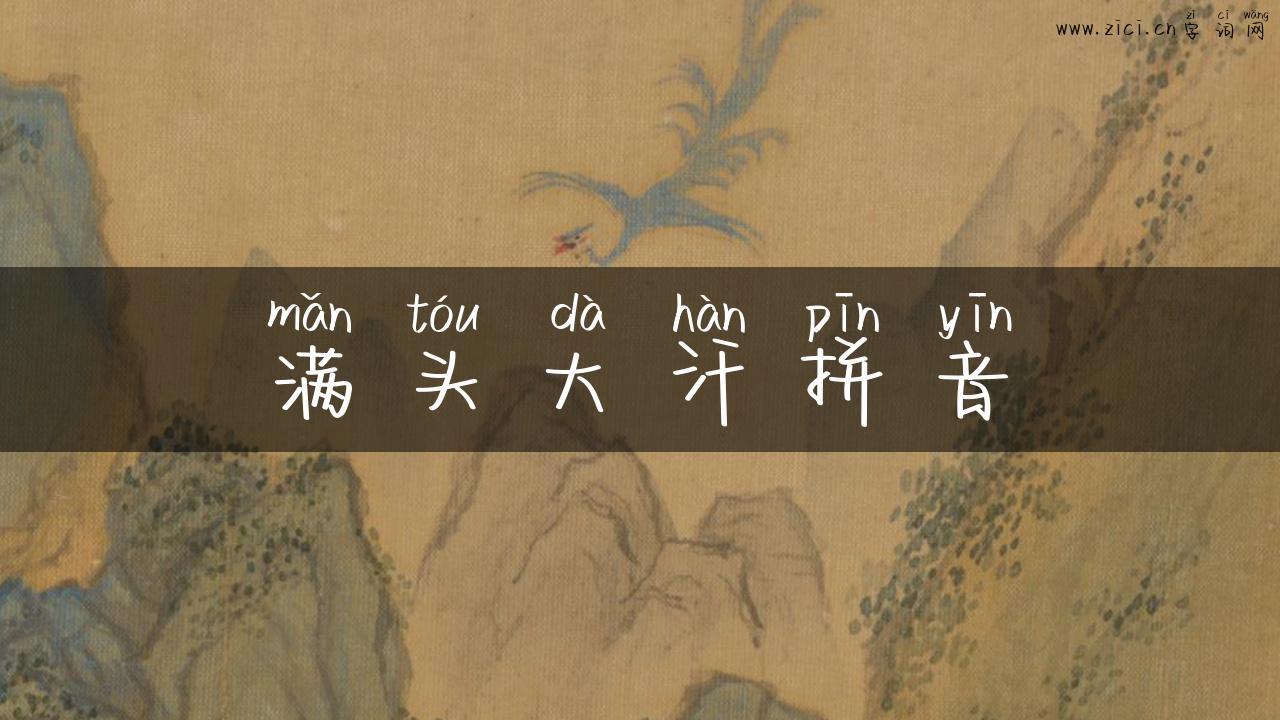 zì cí wǎng
www.zici.cn字词网
mǎn tóu dà hàn pīn yīn
满头大汗拼音